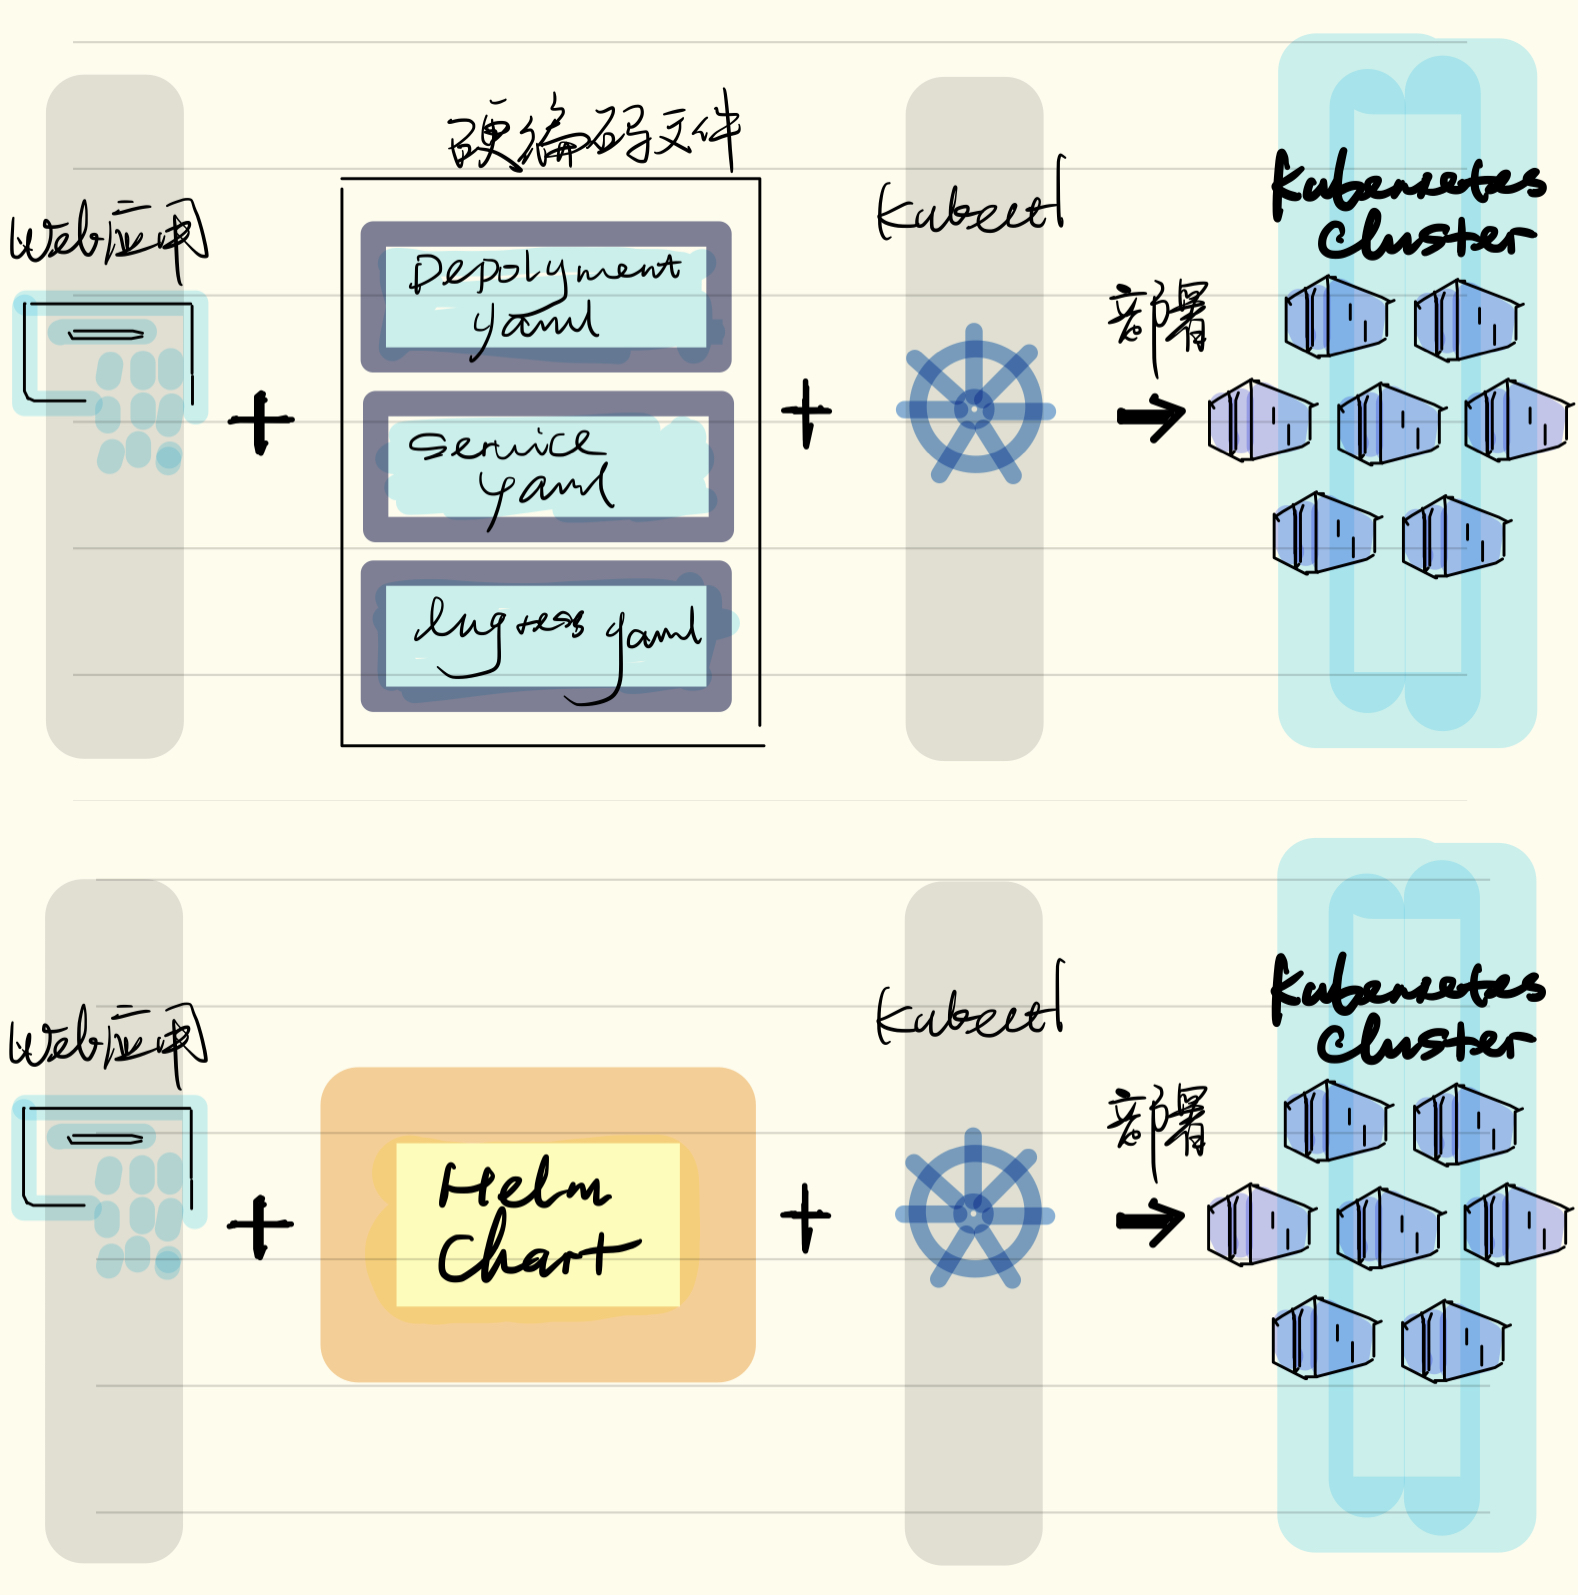 硬编码文件
Web应用
Depolyment
yaml
Service
yaml
Ingress yaml
Kubectl
部署
Kubernetes
Cluster
Web应用
Helm
Chart
Kubectl
部署
Kubernetes
Cluster